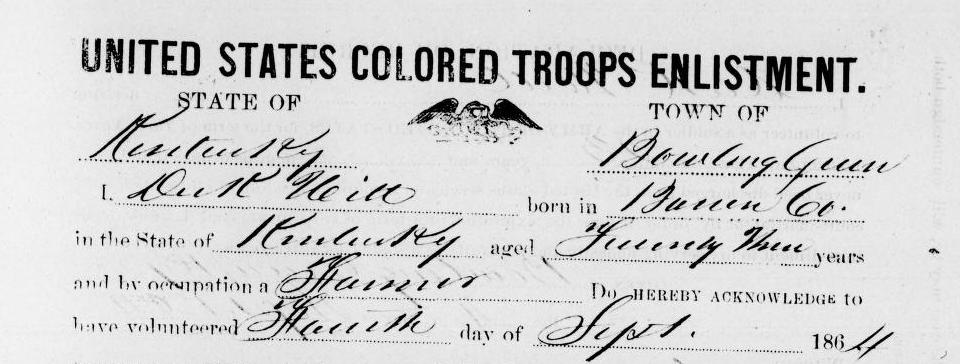 UNITED STATES COLORED TROOPS ENLISTMENT.
STATE OF TOWN OF
Kentucky Bowling Green
I, Dick born in Barren Co.
in the State of Kentucky aged Twenty Three years
and by occupation a Farmer Do HEREBY ACKNOWLEDGE to
have volunteered Fourth day of Sept. 1864